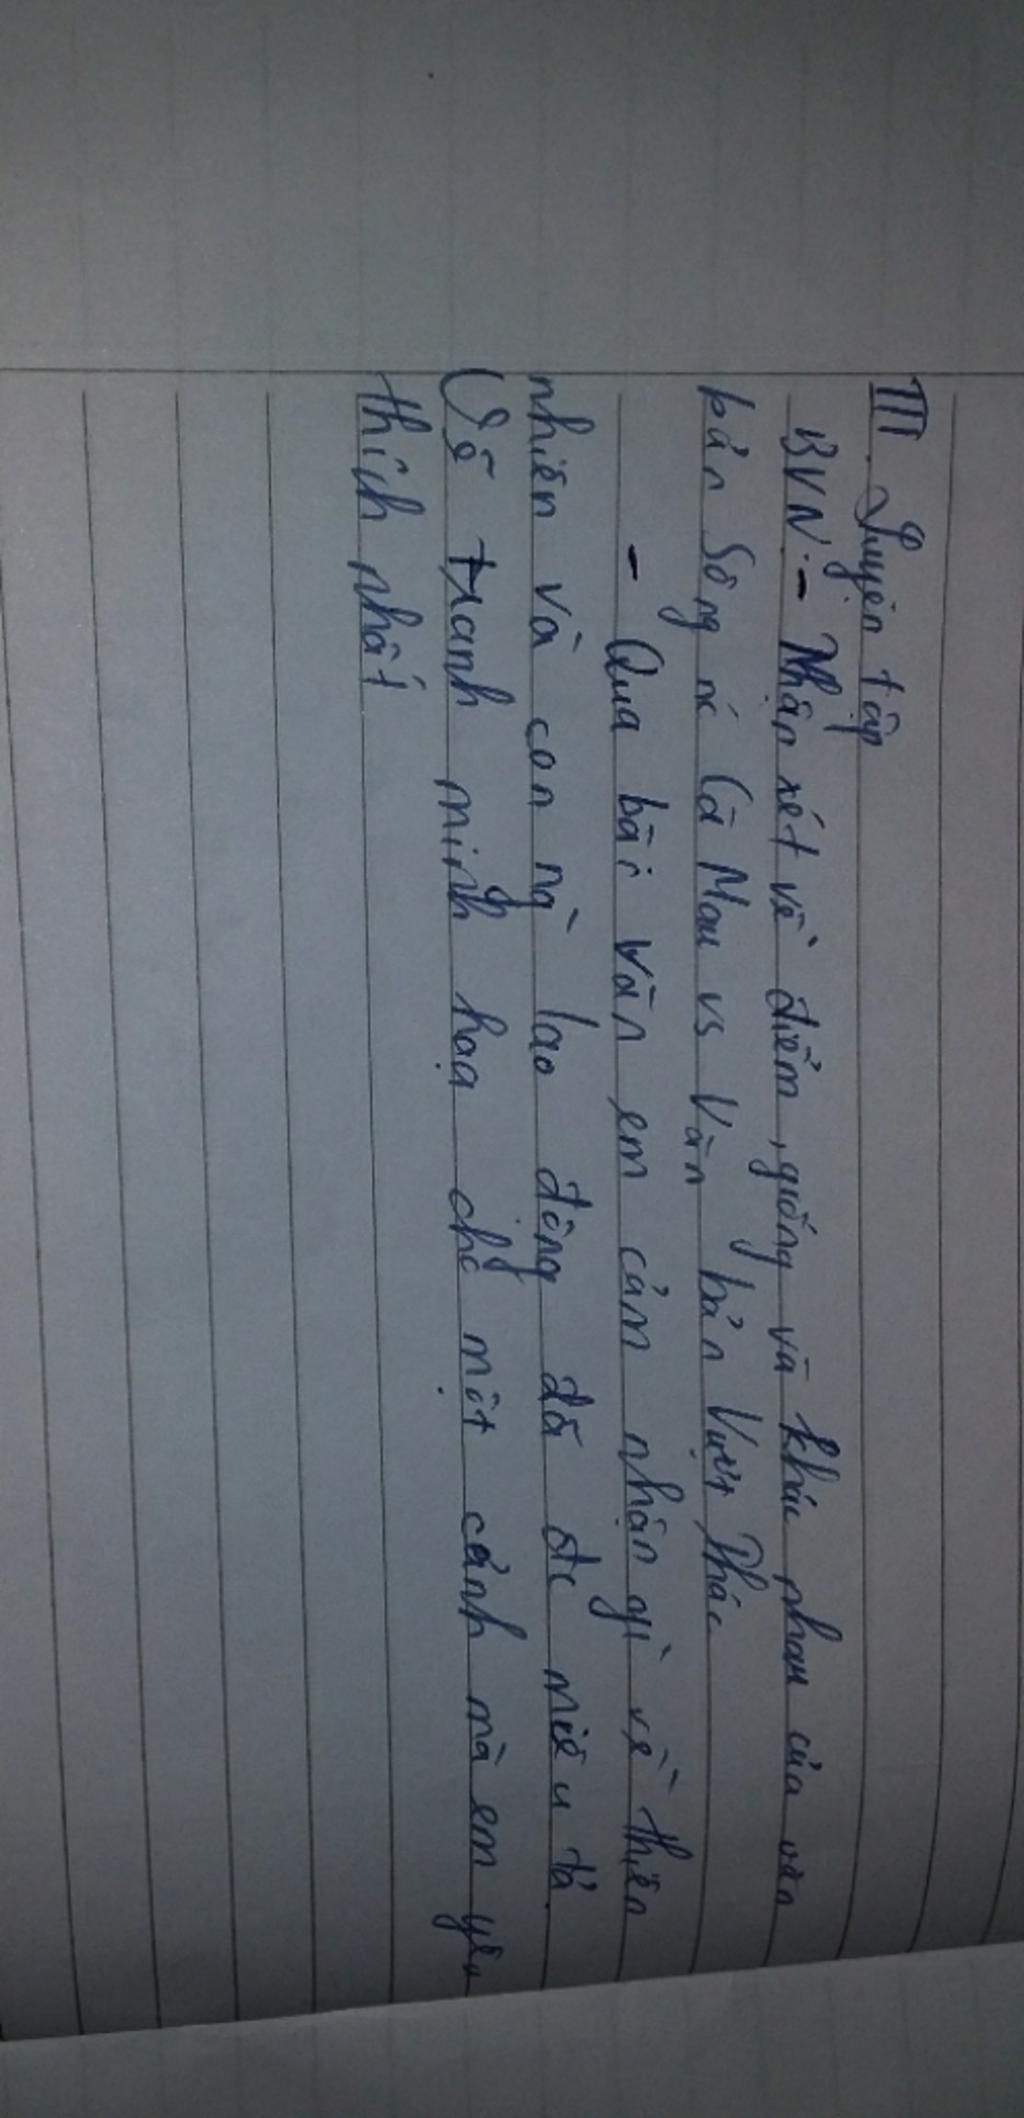 III. Luyện tập
BVN: - Nhận xét về điểm, giống và khác nhau của văn
bản Sông nc Cà Mau vs Văn bản Vượt Thác
- Qua bài văn em cảm nhận gì về thiên
nhiên và con ng` lao động đã đc miêu tả
(Vẽ tranh minh hoạ cho một cảnh mà em yêu
thích nhất